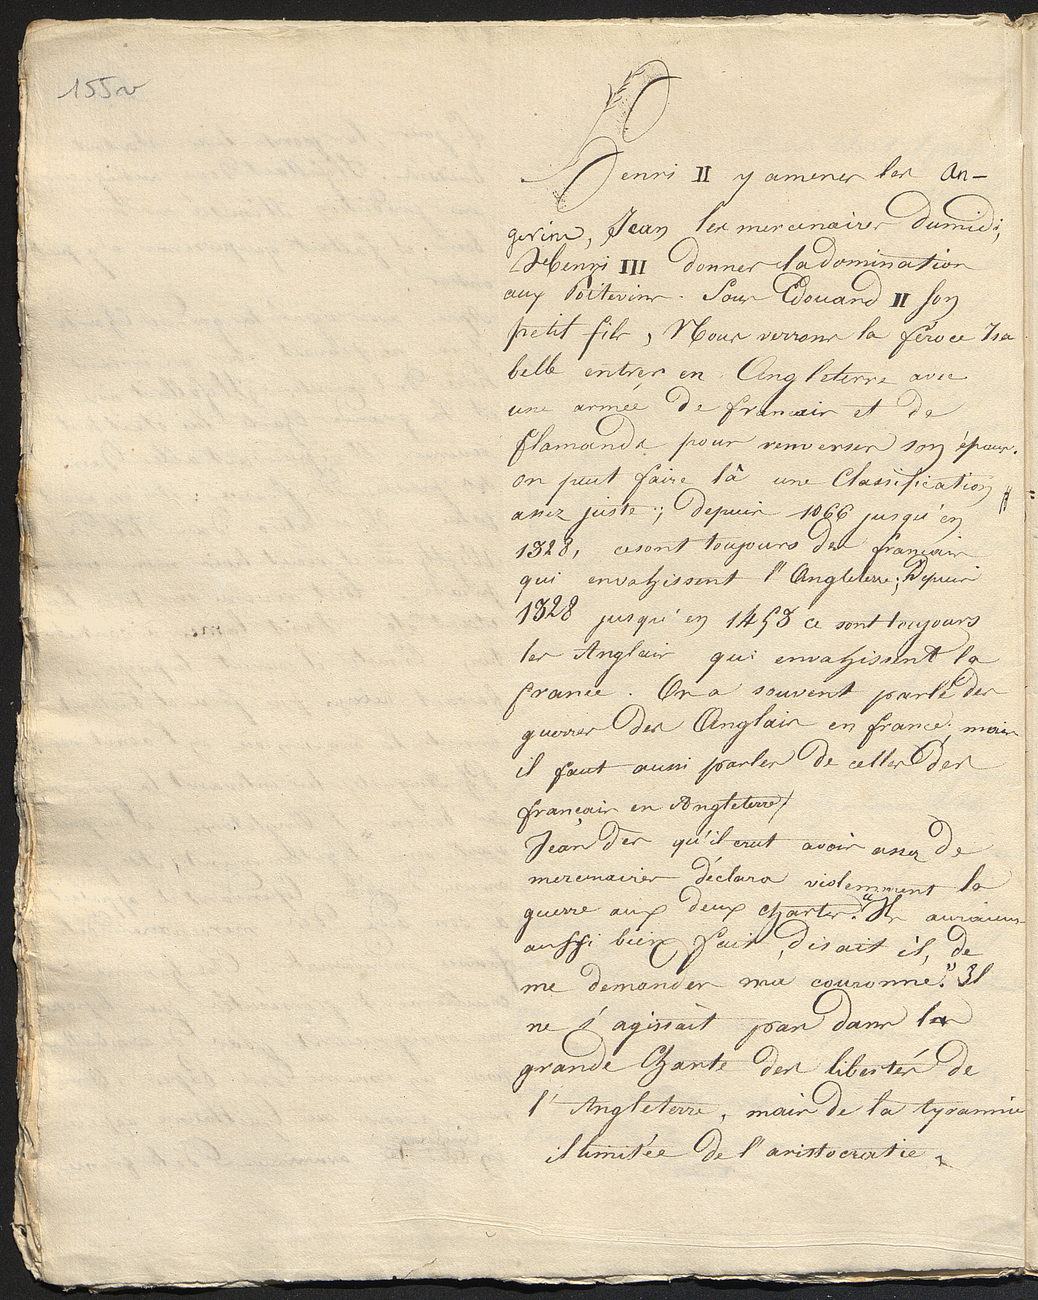 155v
Henri II y amener les An-
gevins, Jean les mercenaires du midi,
Henri III donner la domination
aux Poitevins. Sous Edouard II son
petit fils, Nous verrons la féroce Isa
belle entrer en Angleterre avec
une armée de français et de
flamands pour renverser son époux.
on peut faire là une Classification
assez juste ; depuis 1066 jusqu'en
1328, ce sont toujours des français
qui envahissent l'Angleterre ; Depuis
1328 jusqu'en 1453 ce sont toujours
les Anglais qui envahissent la
france. On a souvent parlé des
guerres des Anglais en france, mais
il faut aussi parler de celles des
français en Angleterre/
Jean des qu'il crut avoir assez de
mercenaires déclara violemment la
guerre aux deux chartes. "Ils auraient
aussi bien fait, disait il, de
me demander ma couronne." Il
ne s'agissait pas dans la
grande Charte des libertés de
l'Angleterre, mais de la tyrannie
illimitée de l'aristocratie.